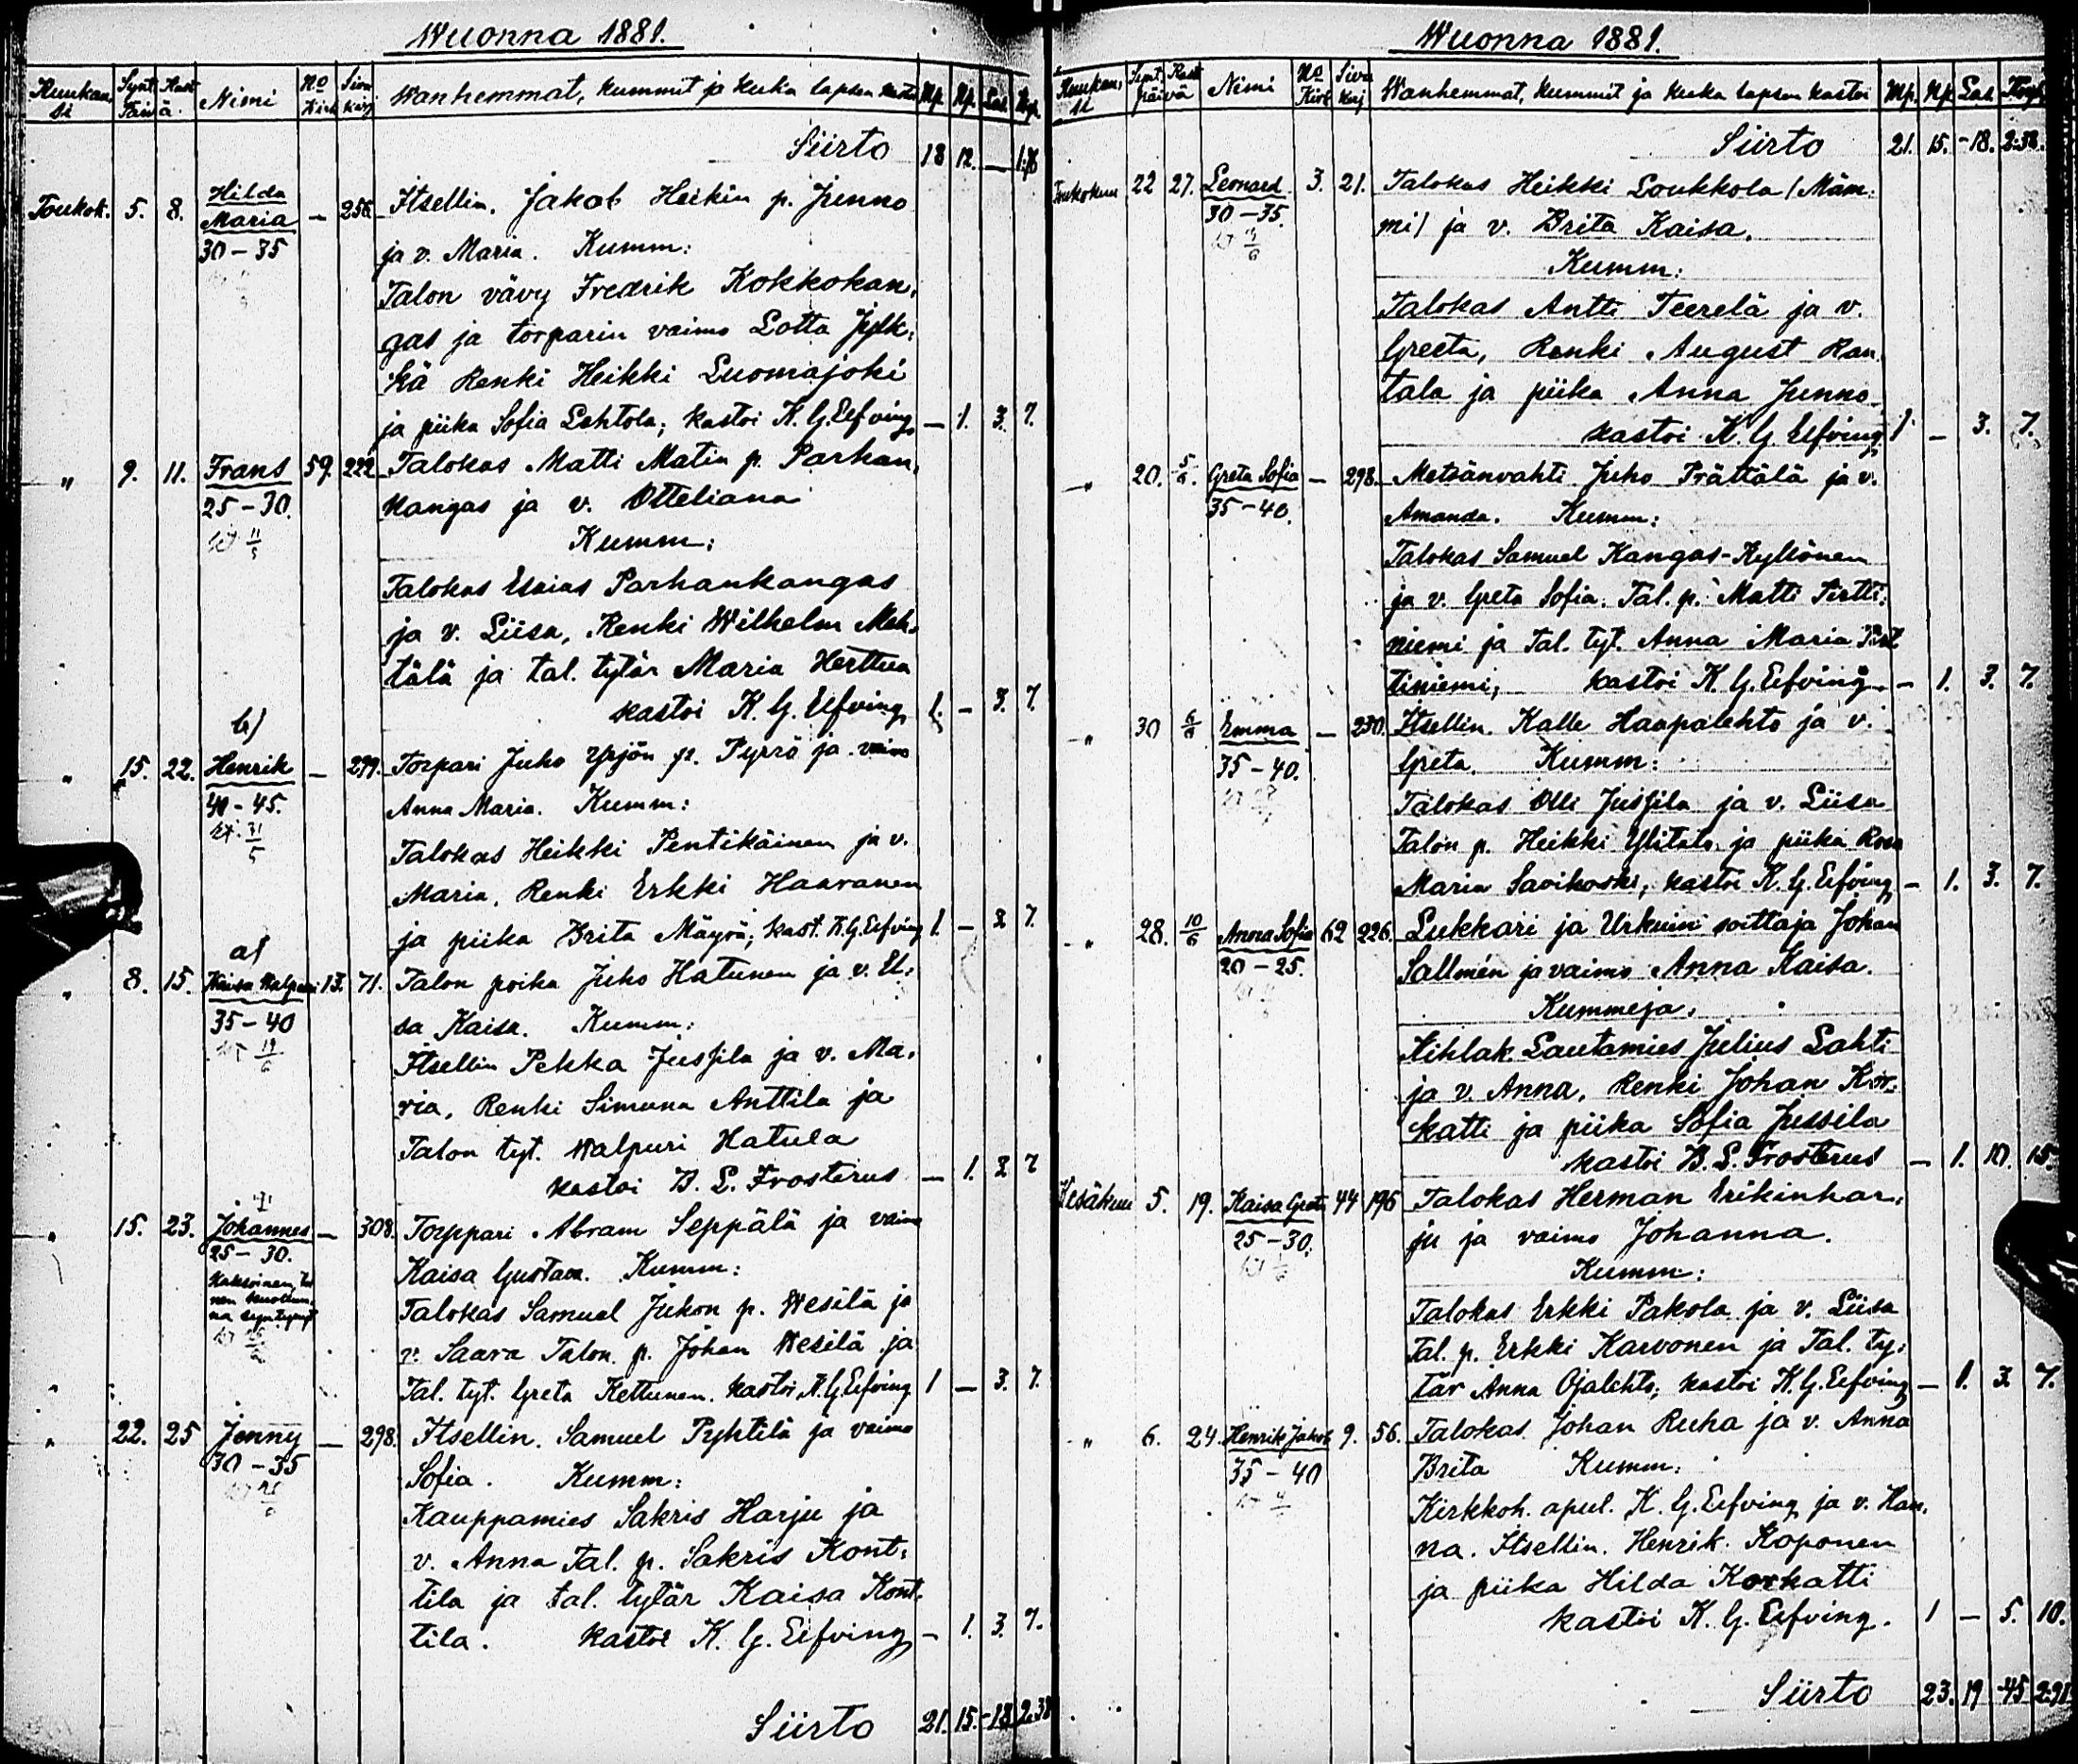 Wuonna 1881.
Kuukau- si Synt. Kast. Päivä. Nimi No Kirk Sivu kirj Wanhemmat, kummit ja kuka lapsen kastoi Mp. Np. Lah. Köyh.
Siirto 18 12. —
Toukok. 5. 8. Hilda Maria — 256. Itsellin. Jakob Heikin p. Junno
30 – 35 ja v. Maria. Kumm:
Talon vävy Fredrik Kokkokan-
gas ja torparin vaimo Lotta Jylk-
kä Renki Heikki Luomajoki
ja piika Sofia Lehtola; kastoi K. G. Eefving — 1. 3. 7.
" 9. 11. Frans 59. 222 Talokas Matti Matin p. Parhan-
25 – 30. kangas ja v. Otteliana
11/5 Kumm:
Talokas Esaias Parhankangas
ja v. Liisa, Renki Wilhelm Meh-
tälä ja tal. tytär Maria Herttua
kastoi K. G. Eefving 1. – 3. 7.
b)
" 15. 22. Henrik — 299. Torpari Juho Yrjön p. Pyrrö ja vaimo
40 – 45. Anna Maria. Kumm:
31/5 Talokas Heikki Pentikäinen ja v.
Maria, Renki Erkki Haaranen
ja piika Brita Mäyrä; kast. K. G. Eefving 1 – 3 7.
a)
" 8. 15. Kaisa Walpuri 13. 71. Talon poika Juho Hatunen ja v. El-
35 – 40 sa Kaisa. Kumm:
19/6 Itsellin Pekka Jussila ja v. Ma-
ria, Renki Simuna Anttila ja
Talon tyt. Walpuri Hatula
kastoi B. L. Frosterus — 1. 3 7
" 15. 23. Johannes — 308. Torppari Abram Seppälä ja vaimo
25 – 30. Kaisa Gustava. Kumm:
Kaksoinen, toi-
nen kuollee-
na syntynyt
Talokas Samuel Jukon p. Wesilä ja
v. Saara Talon p. Johan Wesilä ja
Tal. tyt. Greta Kettunen. kastoi K. G. Eefving 1 — 3. 7.
" 22. 25 Jenny — 298. Itsellin. Samuel Pyhtilä ja vaimo
30 – 35 Sofia. Kumm:
Kauppamies Sakris Harju ja
v. Anna Tal. p. Sakris Kont-
tila ja tal. tytär Kaisa Kont-
tila. kastoi K. G. Eefving – 1. 3. 7.
Siirto 21. 15. –18. 2.38
Wuonna 1881.
Kuukau- si Synt. Kast. päivä Nimi No Kirk Sivu kirj Wanhemmat, kummit ja kuka lapsen kastoi Mp. Np. Lah. Köyh.
Siirto 21. 15. –18. 2.38.
Toukokuu 22 27. Leonard 3. 21. Talokas Heikki Loukkola /Mäm-
30 – 35. mi/ ja v. Brita Kaisa.
Kumm:
Talokas Antti Teerelä ja v.
Greeta, Renki August Ran-
tala ja piika Anna Junno,
kastoi K. G. Eefving 1 – 3. 7.
" 20. 5/6. Greta Sofia — 298. Metsänvahti Juho Trättälä ja v.
35 – 40. Amanda. Kumm:
Talokas Samuel Kangas-Kyllönen
ja v. Greta Sofia. Tal. p. Matti Pirtti-
niemi ja Tal. tyt. Anna Maria Pirt-
tiniemi, kastoi K. G. Eefving – 1. 3. 7.
" 30 6/6 Emma — 230. Itsellin. Kalle Haapalehto ja v.
35 – 40. Greta. Kumm:
Talokas Olli Jussila ja v. Liisa
Talon p. Heikki Ylitalo ja piika Rosa
Maria Savikoski, kastoi K. G. Eefving – 1. 3. 7.
" 28. 10/6 Anna Sofia 62 226. Lukkari ja Urkuin soittaja Johan
20 – 25. Sallmén ja vaimo Anna Kaisa.
Kummeja.
Kihlak. Lautamies Julius Lahti
ja v. Anna, Renki Johan Kor-
katti ja piika Sofia Jussila
kastoi B. L. Frosterus — 1. 10. 15.
Kesäkuu 5. 19. Kaisa Greta 44 196 Talokas Herman Erikinhar-
25 – 30. ju ja vaimo Johanna.
Kumm:
Talokas Erkki Pakola ja v. Liisa
Tal. p. Erkki Karvonen ja Tal. ty-
tär Anna Ojalehto; kastoi K. G. Eefving — 1. 3. 7.
" 6. 24. Henrik Jakob 9. 56. Talokas Johan Ruha ja v. Anna
35 – 40 Brita Kumm:
Kirkkoh. apul. K. G. Eefving ja v. Han-
na. Itsellin. Henrik Koponen
ja piika Hilda Korkatti
kastoi K. G. Eefving. 1 – 5. 10.
Siirto 23. 19 –45 2.91